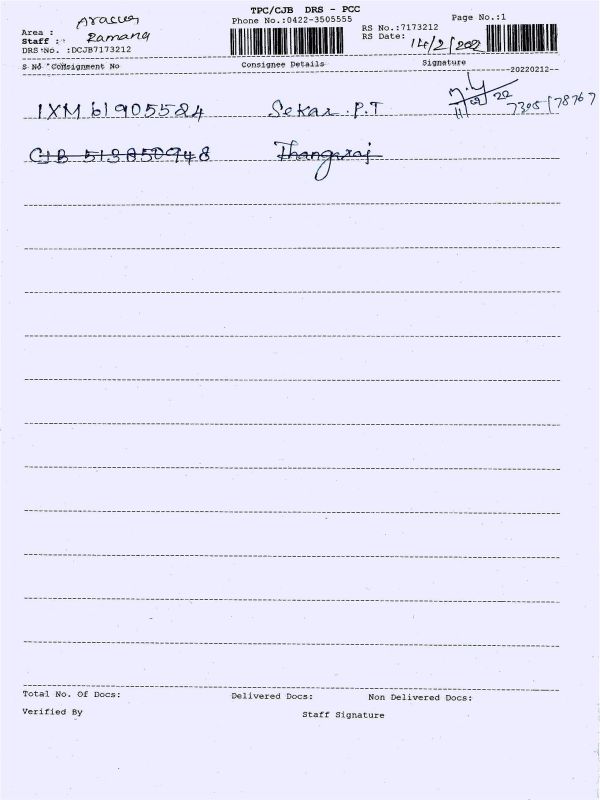 TPC/CJB DRS - PCC
Phone No.:0422-3505555
Page No.:1
Area :
Staff : Ramana
DRS No. :DCJB7173212
RS No.:7173212
RS Date: 14/2/2022
S No Consignment No Consignee Details Signature
--20220212--
IXM 61905584 Sekar .P.T
22
CJB 513850948 Thangaraj
Total No. Of Docs: Delivered Docs: Non Delivered Docs:
Verified By Staff Signature